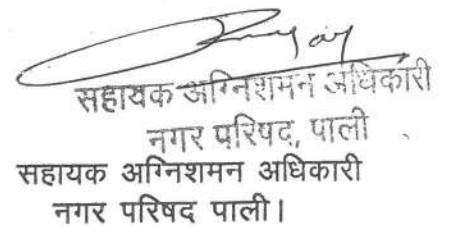 सहायक अग्निशमन अधिकारी
नगर परिषद, पाली
सहायक अग्निशमन अधिकारी
नगर परिषद पाली।